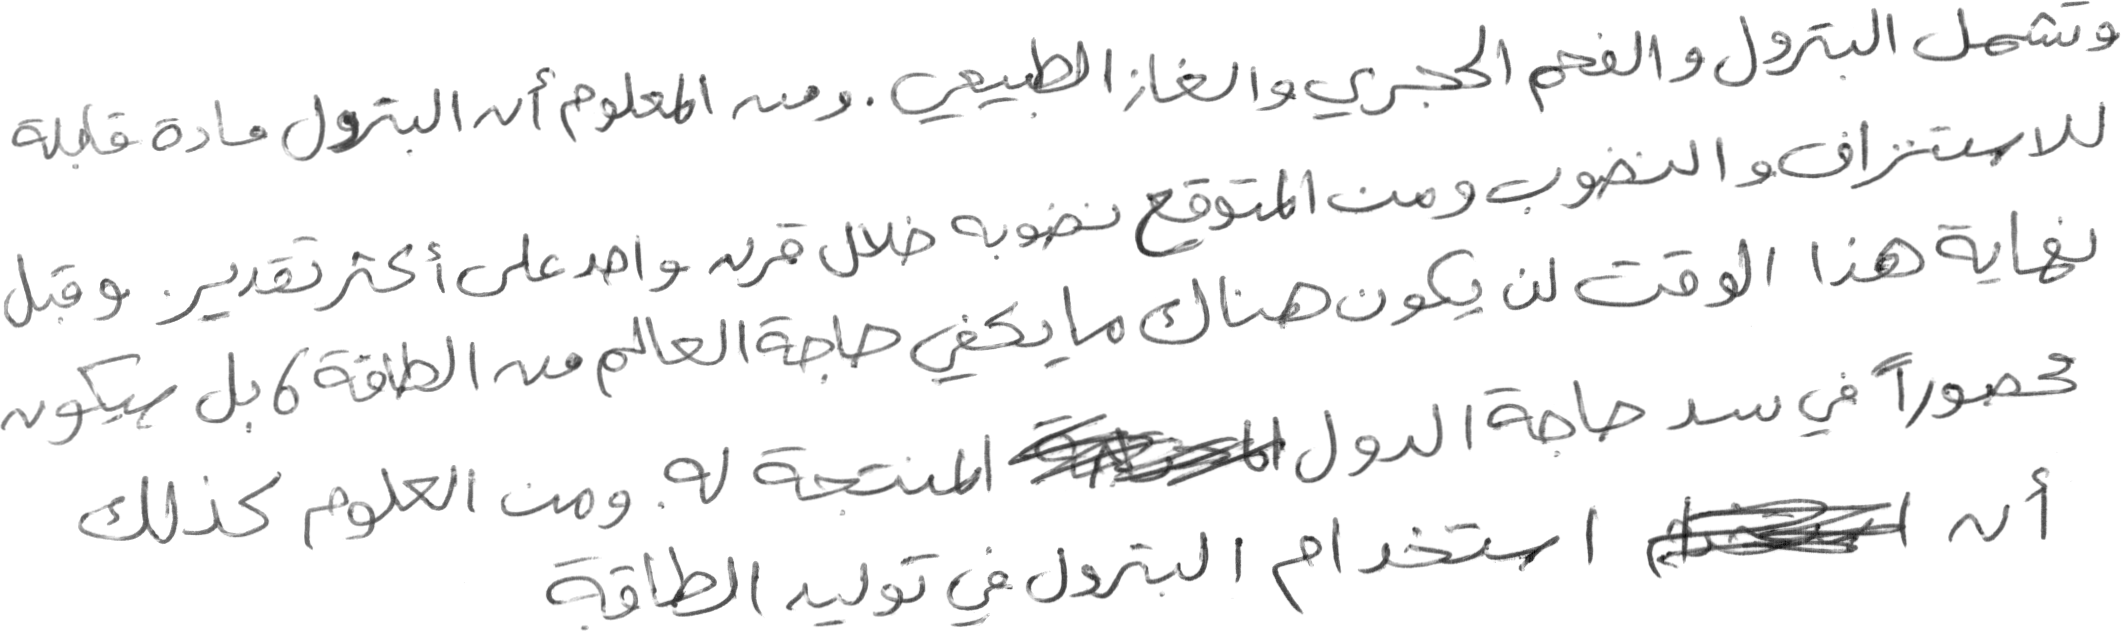 وتشمل البترول والفحم الحجري والغاز الطبيعي. ومن المعلوم أن البترول مادة قابلة
للاستنزاف والنضوب ومن المتوقع نضوبه خلال قرن واحد على أكثر تقدير. وقبل
نهاية هذا الوقت لن يكون هناك ما يكفي حاجة العالم من الطاقة، بل سيكون
محصوراً في سد حاجة الدول المنتجة له. ومن العلوم كذلك
أن استخدام البترول في توليد الطاقة